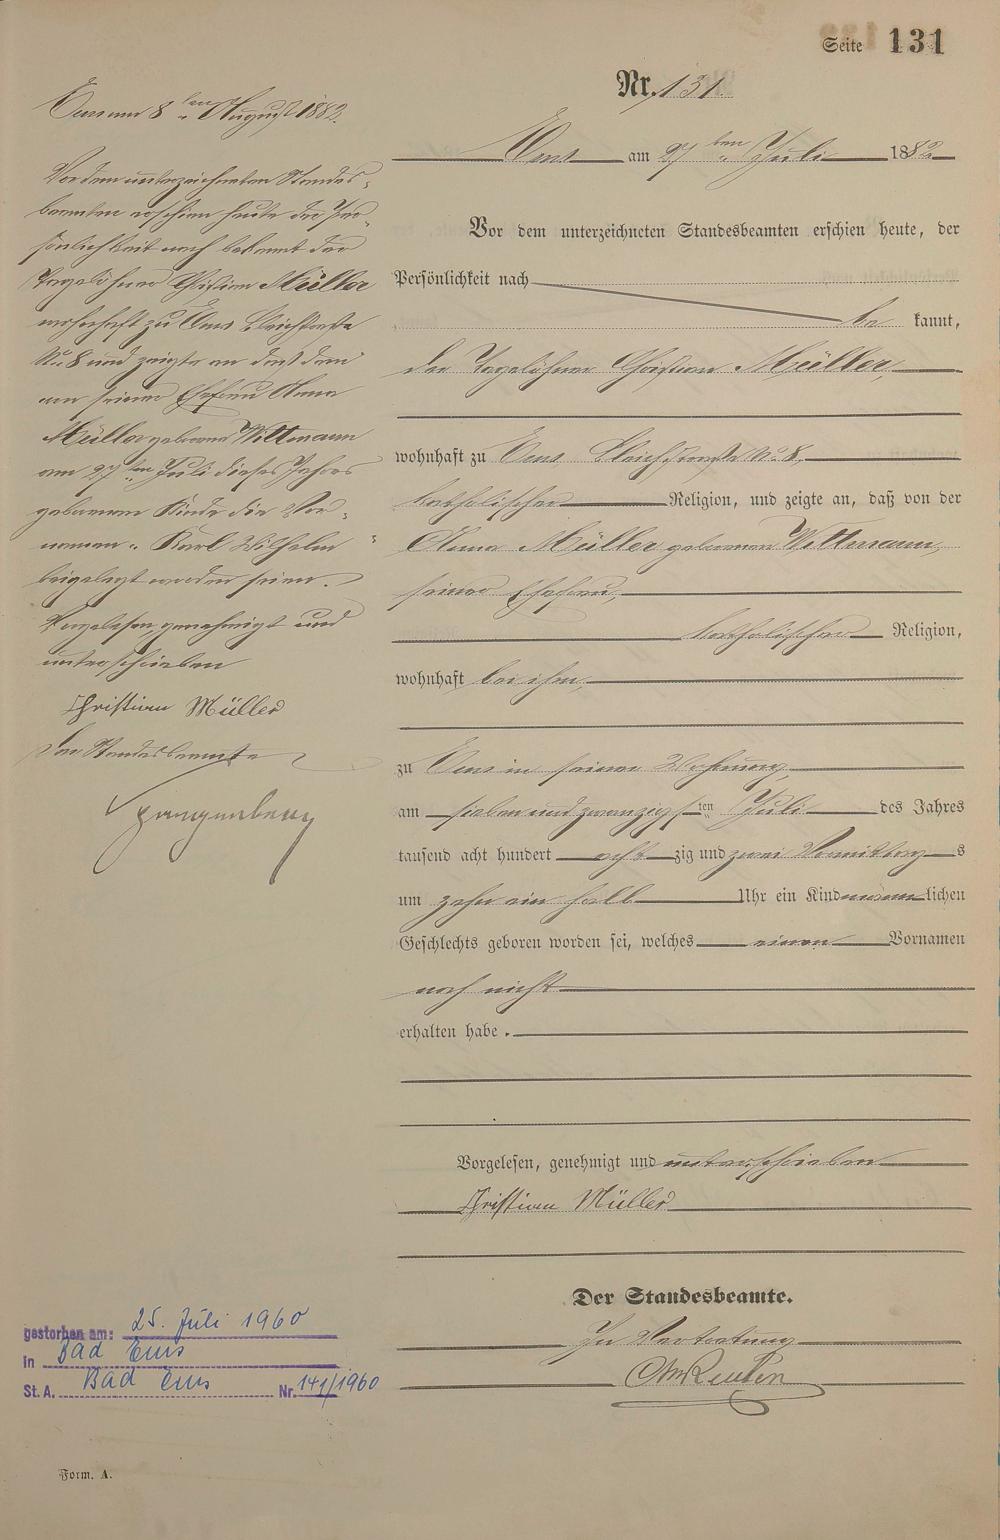 Seite 131
Nr. 131.
Ems am 27ten Juli 1882
Vor dem unterzeichneten Standesbeamten erschien heute, der
Persönlichkeit nach
be kannt,
der Tagelöhner Christian Müller,
wohnhaft zu Ems Bleichstraße No 8,
katholischer Religion, und zeigte an, daß von der
Anna Müller geborenen Wittmann,
seiner Ehefrau,
katholischer Religion,
wohnhaft bei ihm,
zu Ems in seiner Wohnung,
am sieben und zwanzigsten Juli des Jahres
tausend acht hundert acht zig und zwei Vormittag s
um zehn ein halb Uhr ein Kind männ lichen
Geschlechts geboren worden sei, welches einen Vornamen
noch nicht
erhalten habe.
Vorgelesen, genehmigt und unterschrieben
Christian Müller
Der Standesbeamte.
In Vertretung
Ems am 8ten August 1882.
Vor dem unterzeichneten Standes-
beamten erschien heute der Per-
sönlichkeit nach bekannt der
Tagelöhner Christian Müller
wohnhaft zu Ems Bleichstraße
No 8 und zeigte an daß dem
von seiner Ehefrau Anna
Müller geborene Wittmann
am 27ten Juli dieses Jahres
geborenen Kinde die Vor-
namen „Karl Wilhelm“
beigelegt worden seien.
Vorgelesen, genehmigt und
unterschrieben
Christian Müller
Der Standesbeamte
Spangenberg
gestorben am: 25. Juli 1960
in Bad Ems
St. A. Bad Ems Nr. 141/1960
Form. A.